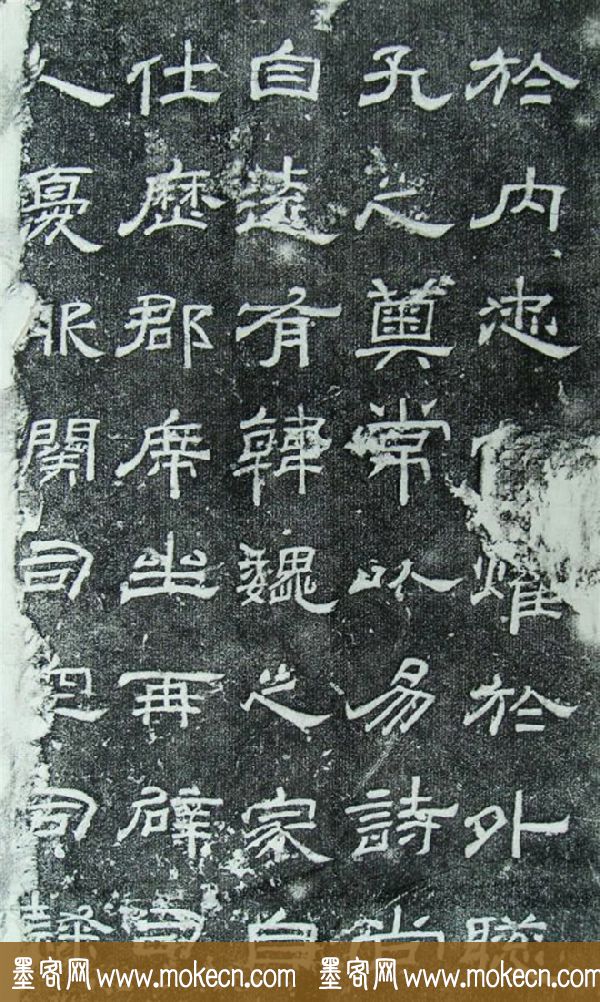 於内忠燿於外
孔之奠常以易詩尚
自遠有韓魏之家自
仕歷郡席坐再辟司
人憂服闋司空司隸
墨客网 www.mokecn.com 墨客网 www.mokecn.com